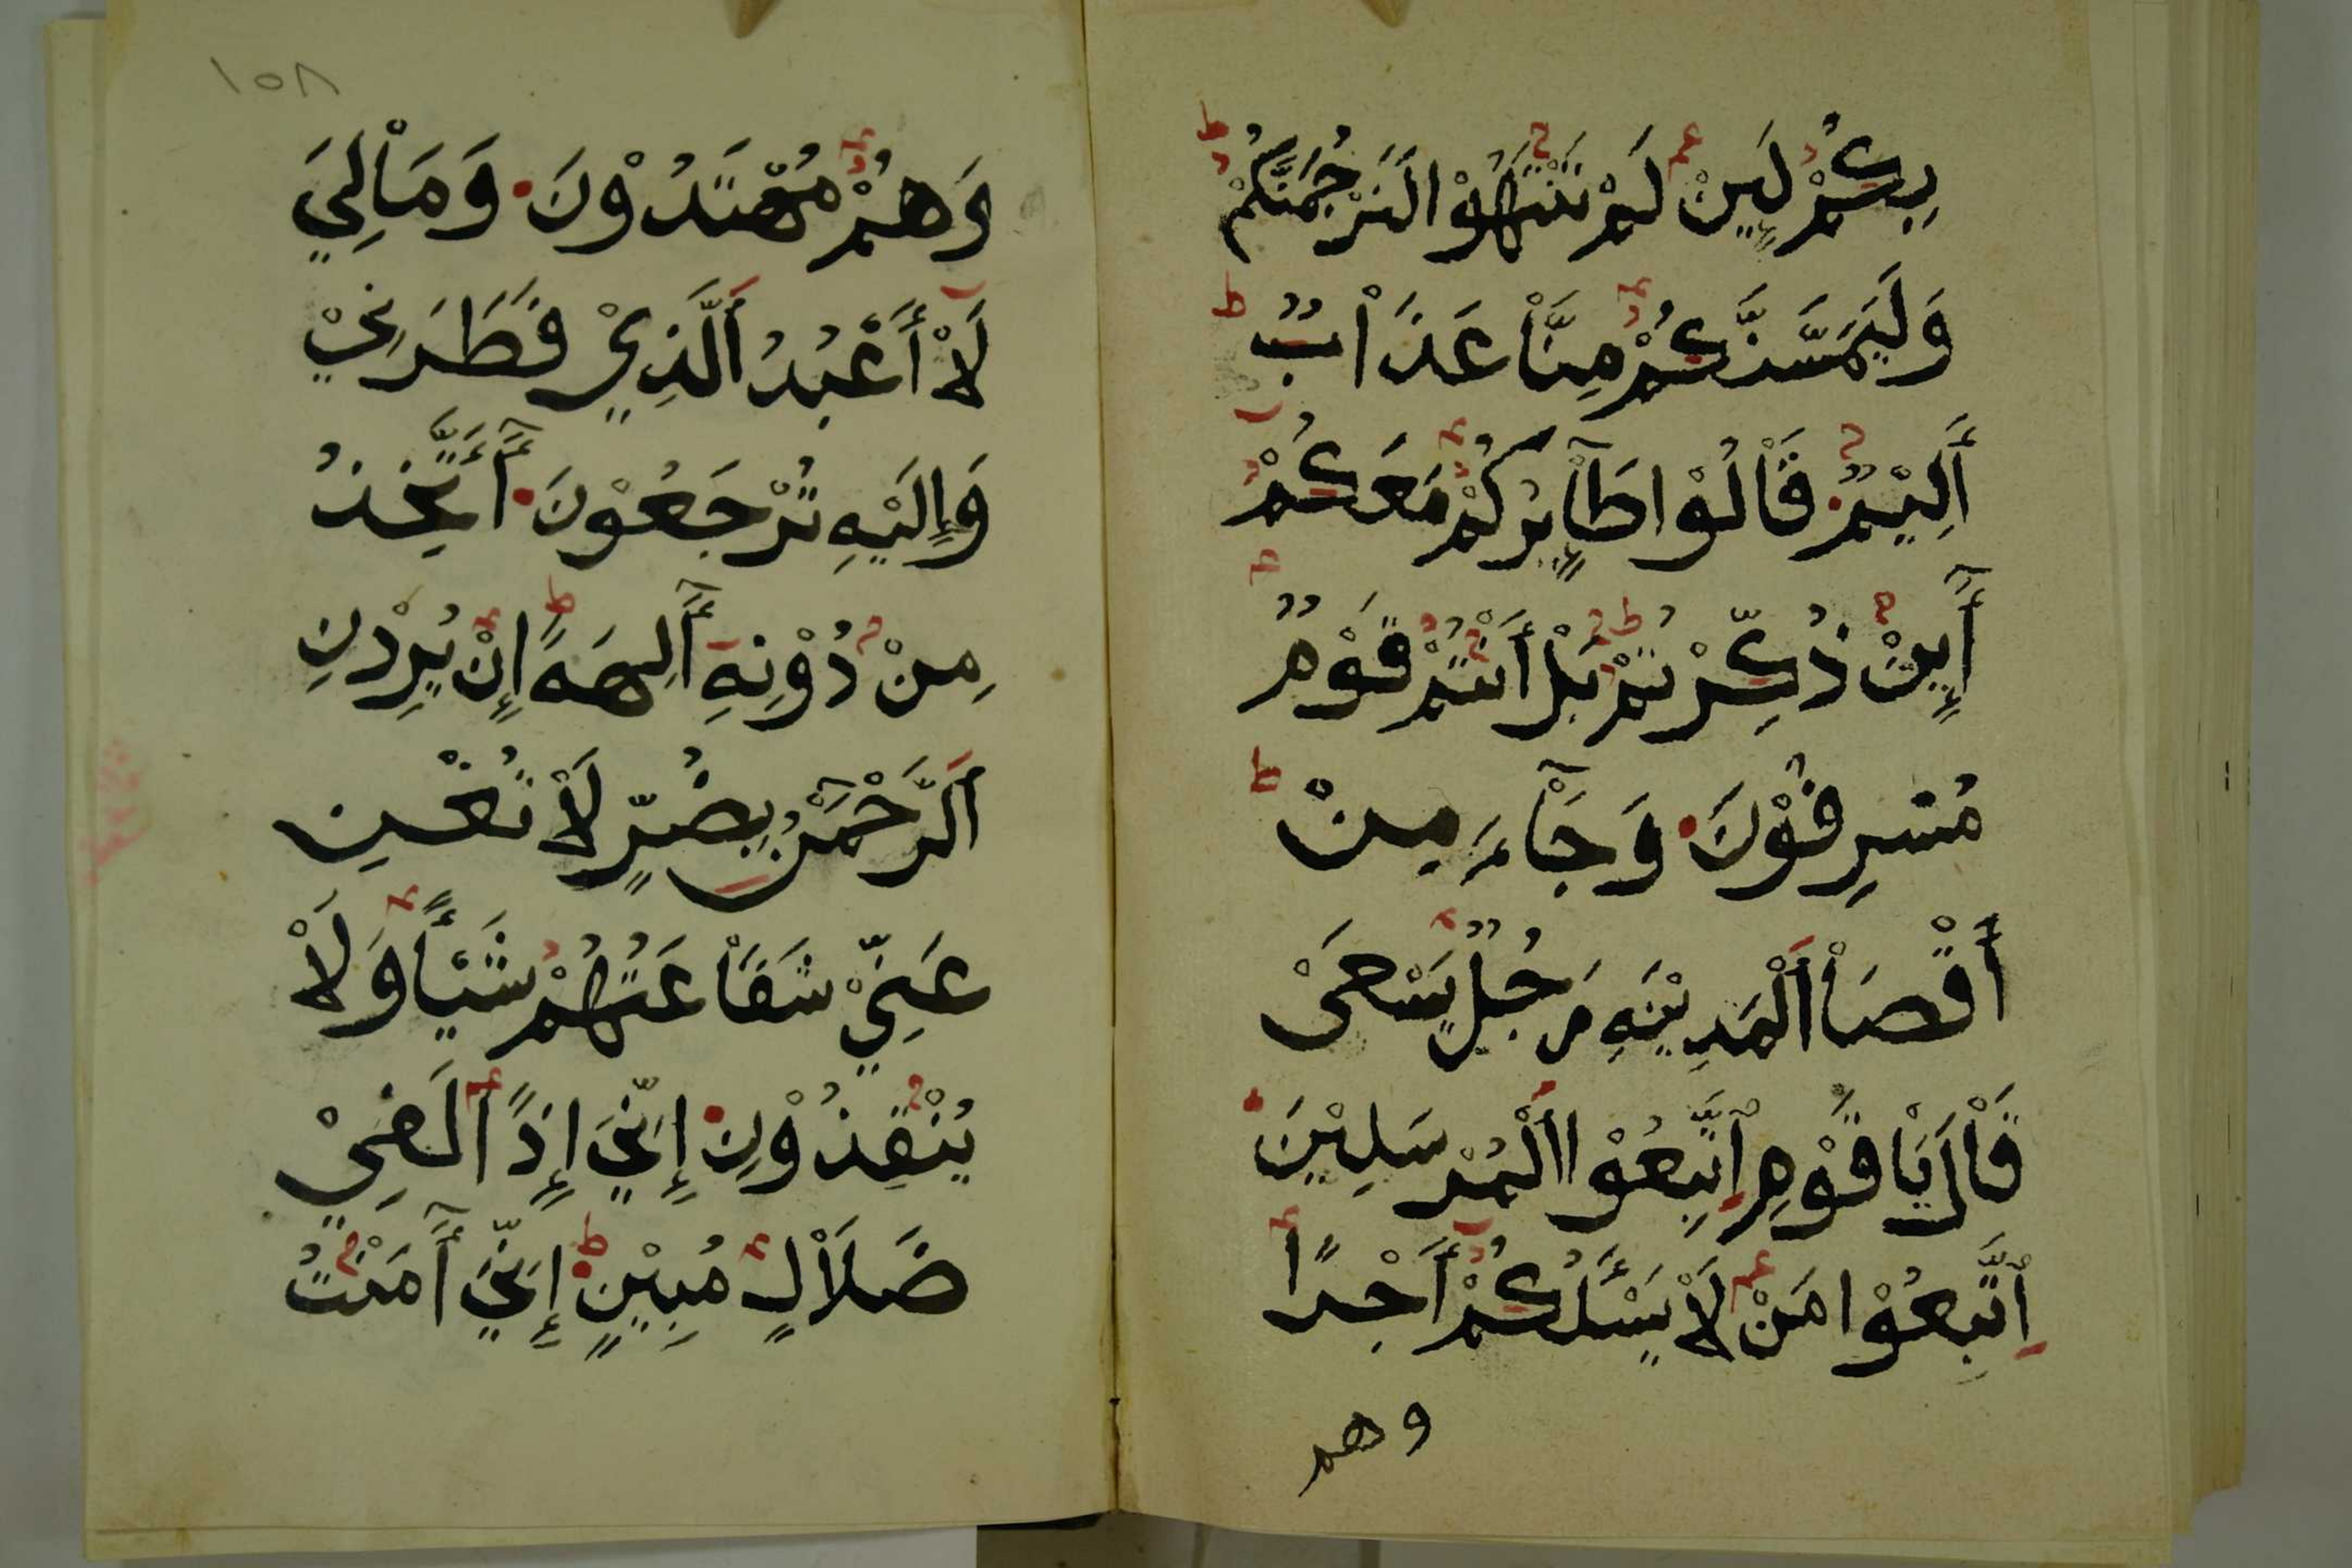 بِكُمْ لَئِنْ لَمْ تَنْتَهُوْا لَنَرْجُمَنَّكُمْ
وَلَيَمَسَّنَّكُمْ مِنَّاْ عَذَاْبٌ
أَلِيْمٌ قَاْلُوْا طَاْئِرُكُمْ مَعَكُمْ
أَئِنْ ذُكِّرْتُمْ بَلْ أَنْتُمْ قَوْمٌ
مُسْرِفُوْنَ وَجَاْءَ مِنْ
أَقْصَاْ اَلْمَدِيْنَةِ رَجُلٌ يَسْعَىْ
قَاْلَ يَاْقَوْمِ اِتَّبِعُوْا اَلْمُرْسَلِيْنَ
اِتَّبِعُوْا مَنْ لَاْ يَسْئَلُكُمْ أَجْرًا
وهم
١٥٨
وَهُمْ مُهْتَدُوْنَ وَمَاْلِيَ
لَاْ أَعْبُدُ اَلَّذِيْ فَطَرَنِيْ
وَإِلَيْهِ تُرْجَعُوْنَ أَأَتَّخِذُ
مِنْ دُوْنِهِ آلِهَةً إِنْ يُرِدْنِ
اَلرَّحْمَنُ بِضُرٍّ لَاْ تُغْنِ
عَنِّيْ شَفَاْعَتُهُمْ شَيْئًا وَلَاْ
يُنْقِذُوْنِ إِنِّيَ إِذًا لَفِيْ
ضَلَاْلٍ مُبِيْنٍ إِنِّيَ آمَنْتُ